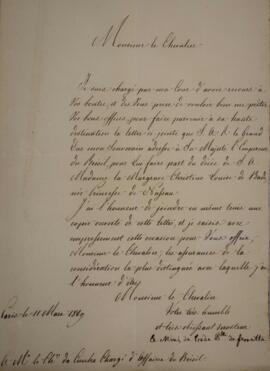 Monsieur le Chevalier
Je suis chargé par ma Cour d'avoir recours à
Vos bontés, et de Vous prier de vouloir bien me prêter
Vos bons offices pour faire parvenir à sa haute
destination la lettre ci-jointe que S. A. R. le Grand
Duc mon Souverain adresse à Sa Majesté l'Empereur
du Brésil, pour Lui faire part du décès de S. A.
Madame la Margrave Christine Louise de Bade,
née Princesse de Nassau.
J'ai l'honneur de joindre en même temps une
copie ouverte de cette lettre, et je saisis avec
empressement cette occasion pour Vous offrir,
Monsieur le Chevalier, les assurances de la
considération la plus distinguée avec laquelle j'ai
l'honneur d'être
Monsieur le Chevalier
Votre très humble
Paris le 11 Mars 1829
et très obéissant serviteur
Le Min. de Bade
A Mr. le Chr. da Cunha Chargé d'Affaires du Brésil.